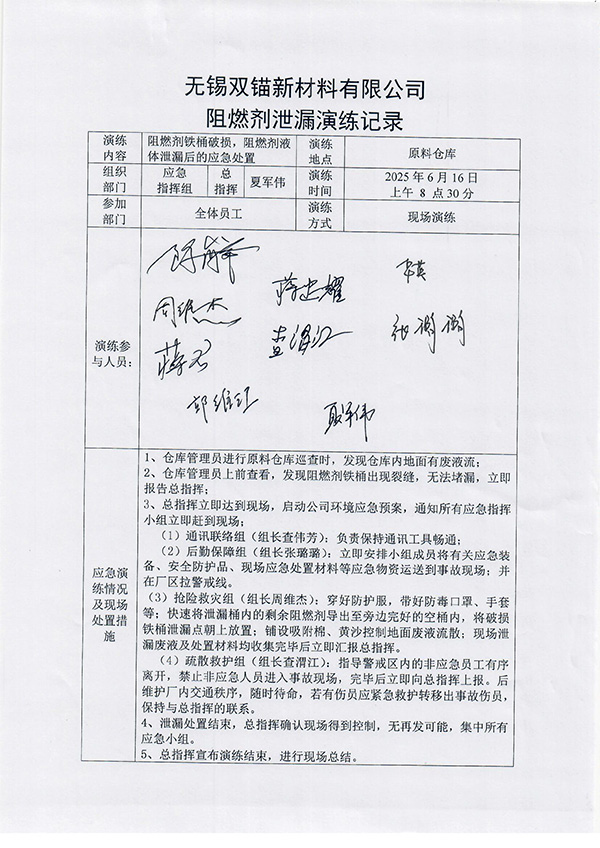 无锡双锚新材料有限公司
阻燃剂泄漏演练记录
演练内容 阻燃剂铁桶破损，阻燃剂液体泄漏后的应急处置 演练地点 原料仓库
组织部门 应急指挥组 总指挥 夏军伟 演练时间 2025年6月16日上午8点30分
参加部门 全体员工 演练方式 现场演练
演练参与人员：
周维杰
蒋忠耀
查渭江
张璐璐
蒋君
郑维红
夏军伟
应急演练情况及现场处置措施
1、仓库管理员进行原料仓库巡查时，发现仓库内地面有废液流；
2、仓库管理员上前查看，发现阻燃剂铁桶出现裂缝，无法堵漏，立即
报告总指挥；
3、总指挥立即达到现场，启动公司环境应急预案，通知所有应急指挥
小组立即赶到现场；
（1）通讯联络组（组长查伟芳）：负责保持通讯工具畅通；
（2）后勤保障组（组长张璐璐）：立即安排小组成员将有关应急装
备、安全防护品、现场应急处置材料等应急物资运送到事故现场；并
在厂区拉警戒线。
（3）抢险救灾组（组长周维杰）：穿好防护服，带好防毒口罩、手套
等；快速将泄漏桶内的剩余阻燃剂导出至旁边完好的空桶内，将破损
铁桶泄漏点朝上放置；铺设吸附棉、黄沙控制地面废液流散；现场泄
漏废液及处置材料均收集完毕后立即汇报总指挥。
（4）疏散救护组（组长查渭江）：指导警戒区内的非应急员工有序
离开，禁止非应急人员进入事故现场，完毕后立即向总指挥上报。后
维护厂内交通秩序，随时待命，若有伤员应紧急救护转移出事故伤员，
保持与总指挥的联系。
4、泄漏处置结束，总指挥确认现场得到控制，无再发可能，集中所有
应急小组。
5、总指挥宣布演练结束，进行现场总结。